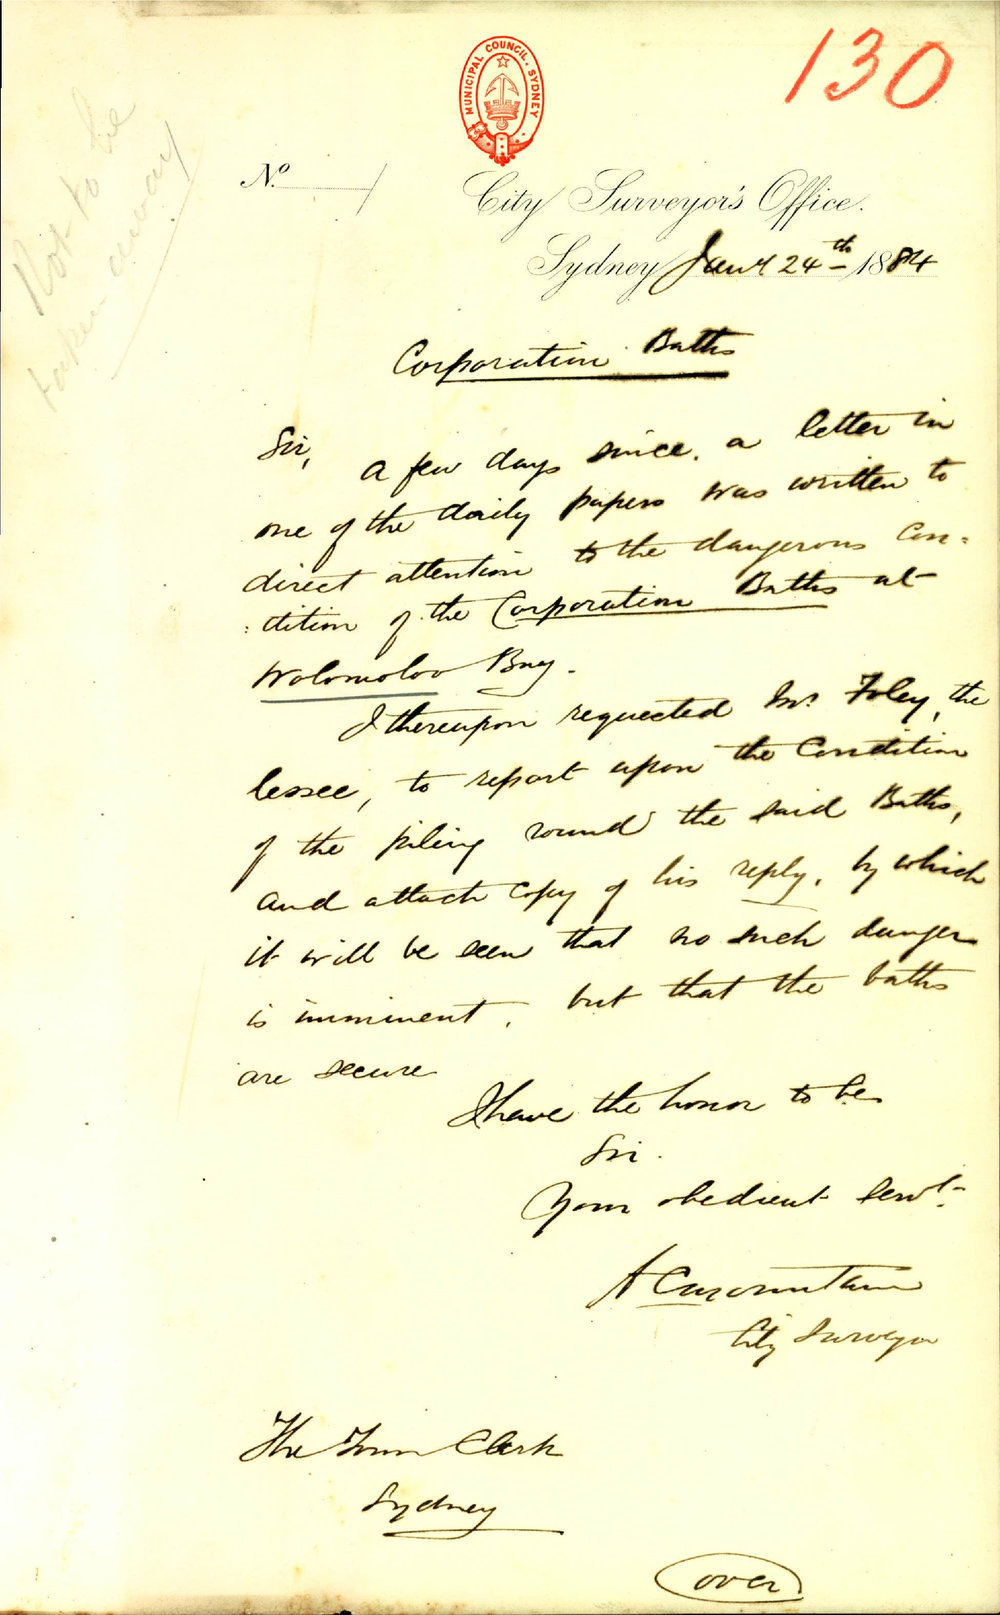 130
MUNICIPAL COUNCIL. SYDNEY
Not to be
taken away
No.
City Surveyor's Office.
Sydney Jany 24th 1884
Corporation Baths
Sir,
A few days since, a letter in
one of the daily papers was written to
direct attention to the dangerous Con=
:dition of the Corporation Baths at
Wolomoloo Bay.
I thereupon requested Mr Foley, the
lessee, to report upon the Condition
of the piling round the said Baths,
and attach copy of his reply, by which
it will be seen that no such danger
is imminent, but that the baths
are secure
I have the honor to be
Sir.
Your obedient Servt.
A C Mountain
City Surveyor
The Town Clerk
Sydney
over